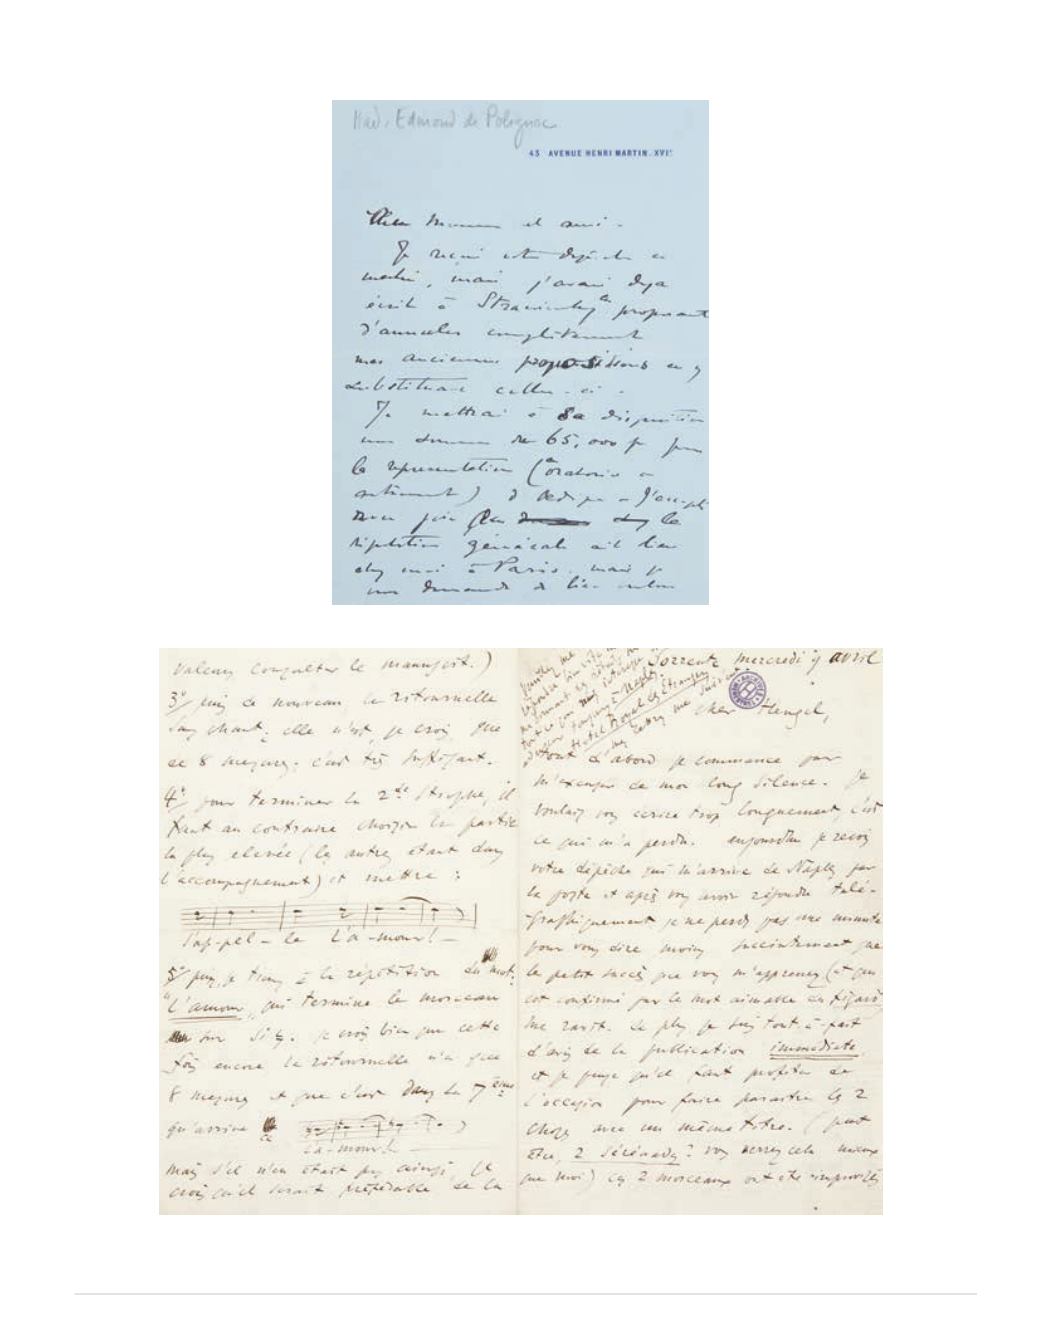 Mad. Edmond de Polignac
43 AVENUE HENRI MARTIN. XVIe
Cher Monsieur et ami -
Je reçois votre dépêche ce
matin, mais j'avais déjà
écrit à Stravinsky proposant
d'annuler complètement
mes anciennes propositions en y
substituant celles-ci -
Je mettrai à sa disposition
une somme de 65,000 f pour
la représentation (oratorio
) d'Oedipe
le
répétition générale ait lieu
chez moi à Paris. mais je
vous demande de bien vouloir
valeurs consulter le manuscrit.)
3º/ puis de nouveau la ritournelle
sans chant; elle n'est, je crois, que
de 8 mesures; c'est très suffisant.
4º/ pour terminer la 2de strophe, il
faut au contraire choisir la partie
la plus élevée (les autres étant dans
l'accompagnement) et mettre :
s'ap-pel-le L'a-mour! -
5º puis, je tiens à la répétition du mot:
"L'amour" qui termine le morceau
sur si ♮. je crois bien que cette
fois encore la ritournelle n'a que
8 mesures et que c'est dans la 7ème
qu'arrive ce
La-mour!
mais s'il n'en était pas ainsi, je
crois qu'il serait préférable de la
Sorrente mercredi 9 avril
à Naples.
Hotel Royal des Étrangers
cher Hengel,
tout d'abord je commence par
m'excuser de mon long silence. je
voulais vous écrire trop longuement, c'est
ce qui m'a perdu. aujourdhui je reçois
votre dépêche qui m'arrive de Naples par
la poste et après vous avoir répondu télé-
graphiquement je ne perds pas une minute
pour vous dire moins succintement que
le petit succès que vous m'apprenez (et qui
est confirmé par le mot aimable du figaro)
me ravit. de plus je suis tout-à-fait
d'avis de la publication immédiate
et je pense qu'il faut profiter de
l'occasion pour faire paraître les 2
choses avec un même titre. (peut
être, 2 sérénades? vous verrez cela mieux
que moi) les 2 morceaux ont été improvisés